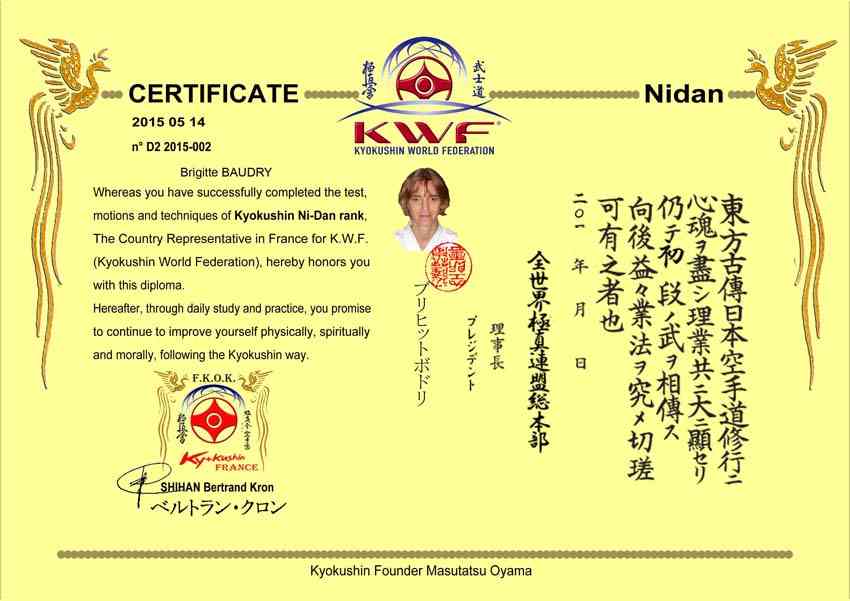 CERTIFICATE
Nidan
2015 05 14
n° D2 2015-002
極真会
武士道
KWF
KYOKUSHIN WORLD FEDERATION
Brigitte BAUDRY
Whereas you have successfully completed the test,
motions and techniques of Kyokushin Ni-Dan rank,
The Country Representative in France for K.W.F.
(Kyokushin World Federation), hereby honors you
with this diploma.
Hereafter, through daily study and practice, you promise
to continue to improve yourself physically, spiritually
and morally, following the Kyokushin way.
東方古傳日本空手道修行ニ
心魂ヲ盡シ理業共ニ大ニ顯セリ
仍テ初段ノ武ヲ相傳ス
向後益々業法ヲ究メ切瑳
可有之者也
二〇一 年 月 日
全世界極真連盟総本部
理事長
プレジデント
ブリヒットボドリ
F.K.O.K.
極真会
Kyokushin
FRANCE
SHIHAN Bertrand Kron
ベルトラン・クロン
Kyokushin Founder Masutatsu Oyama